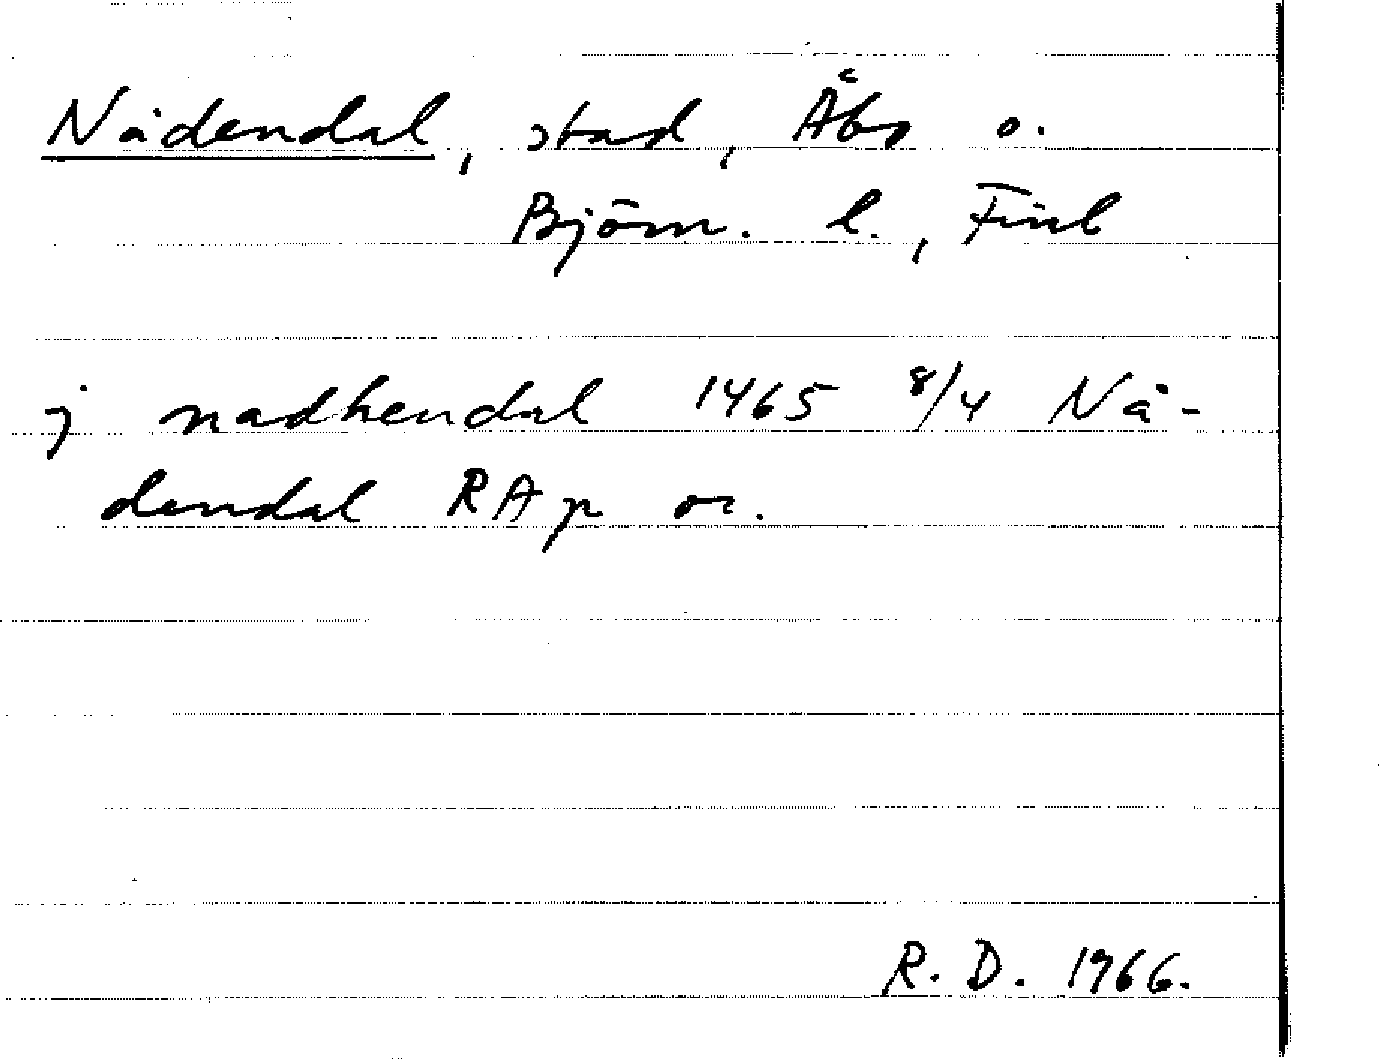 Nådendal, stad, Åbo o.
Björn. l., Finl
j nadhendal 1465 8/4 Nå-
dendal RAp or.
R. D. 1966.